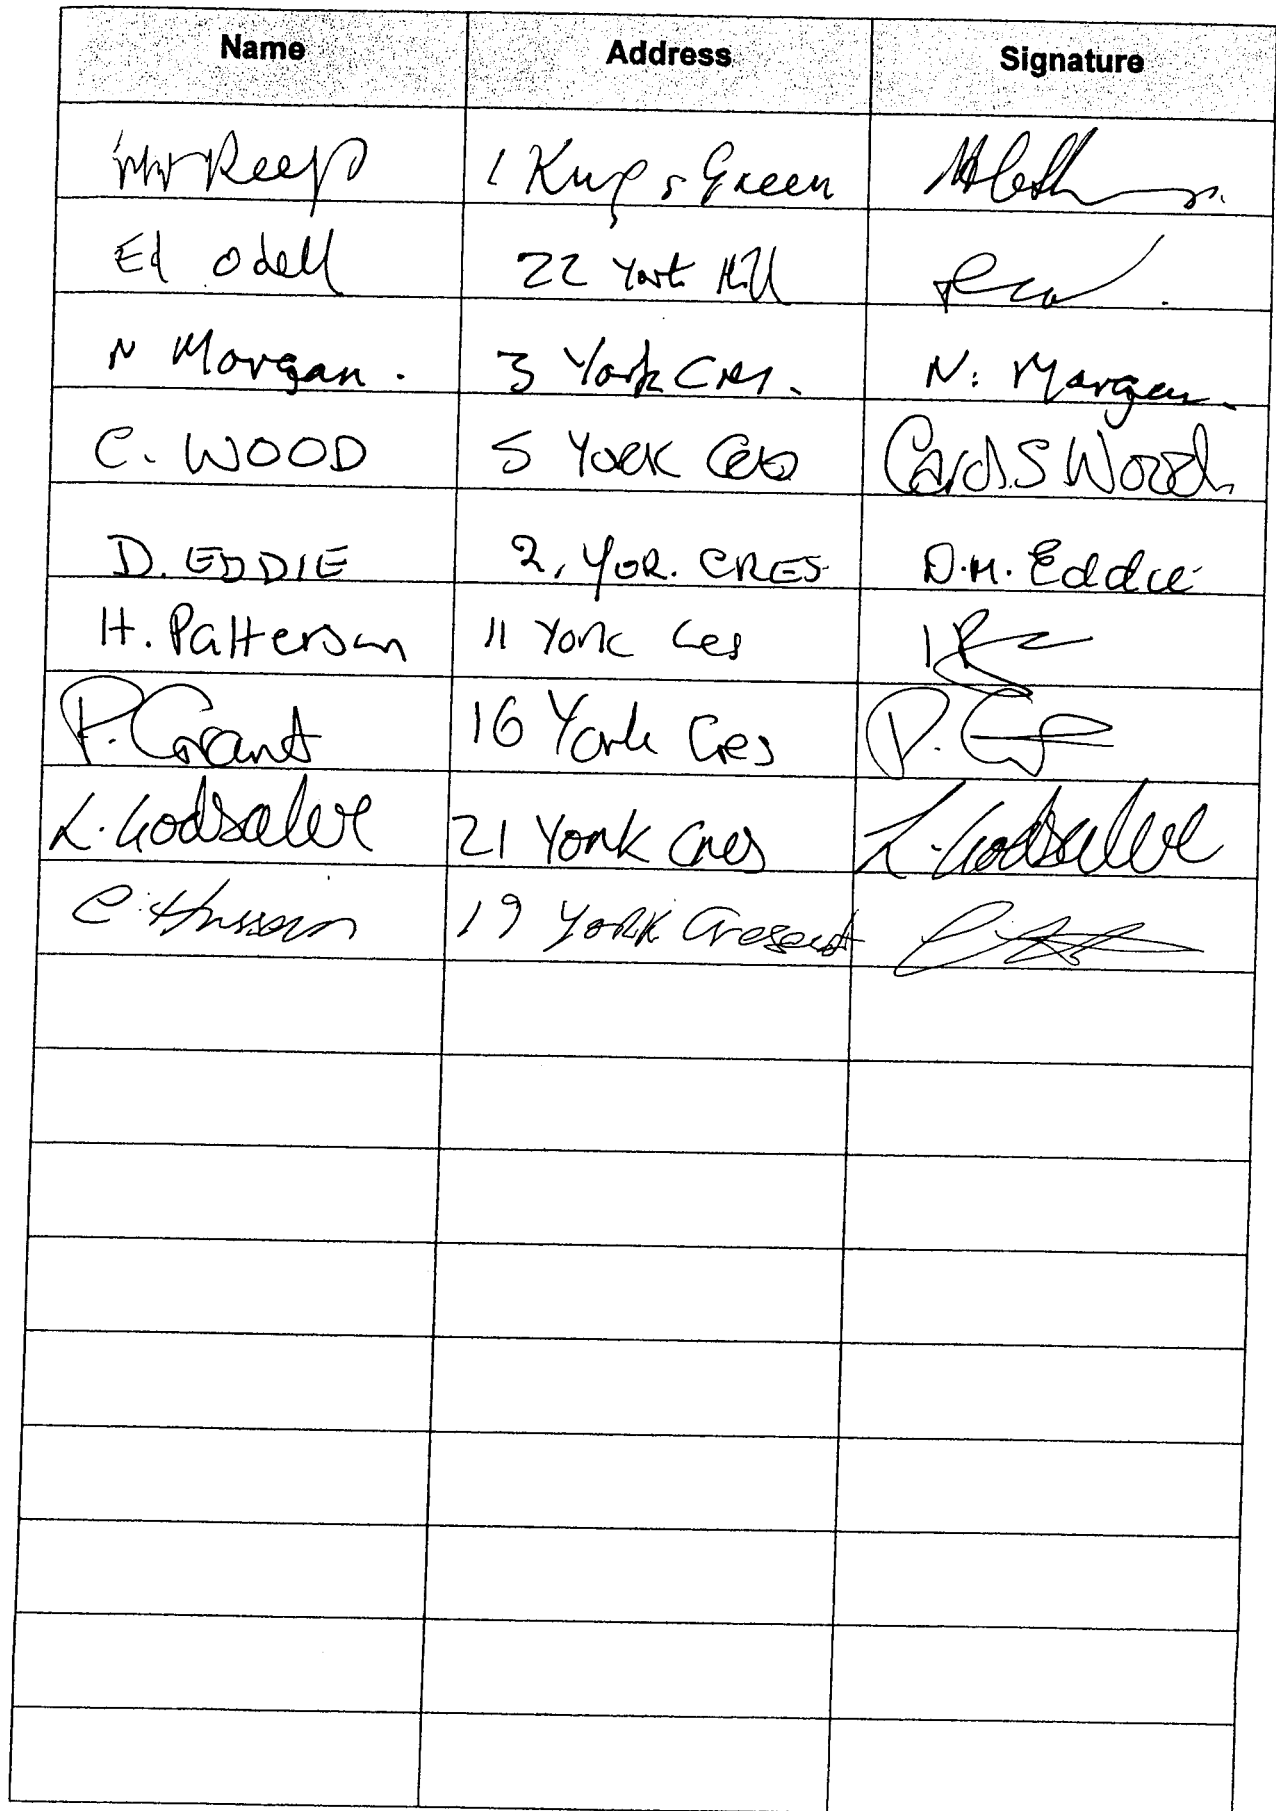 Name Address Signature
1 Kings Green
Ed Odell 22 York Hill
N Morgan. 3 York Cres. N. Morgan.
C. WOOD 5 York Cres Carol.S Wood
D. EDDIE 2, YOR. CRES D.M. Eddie
H. Patterson 11 York Cres
P. Grant 16 York Cres P. G
L. Godsalve 21 York Cres L. Godsalve
C. Hussein 19 York Cresent